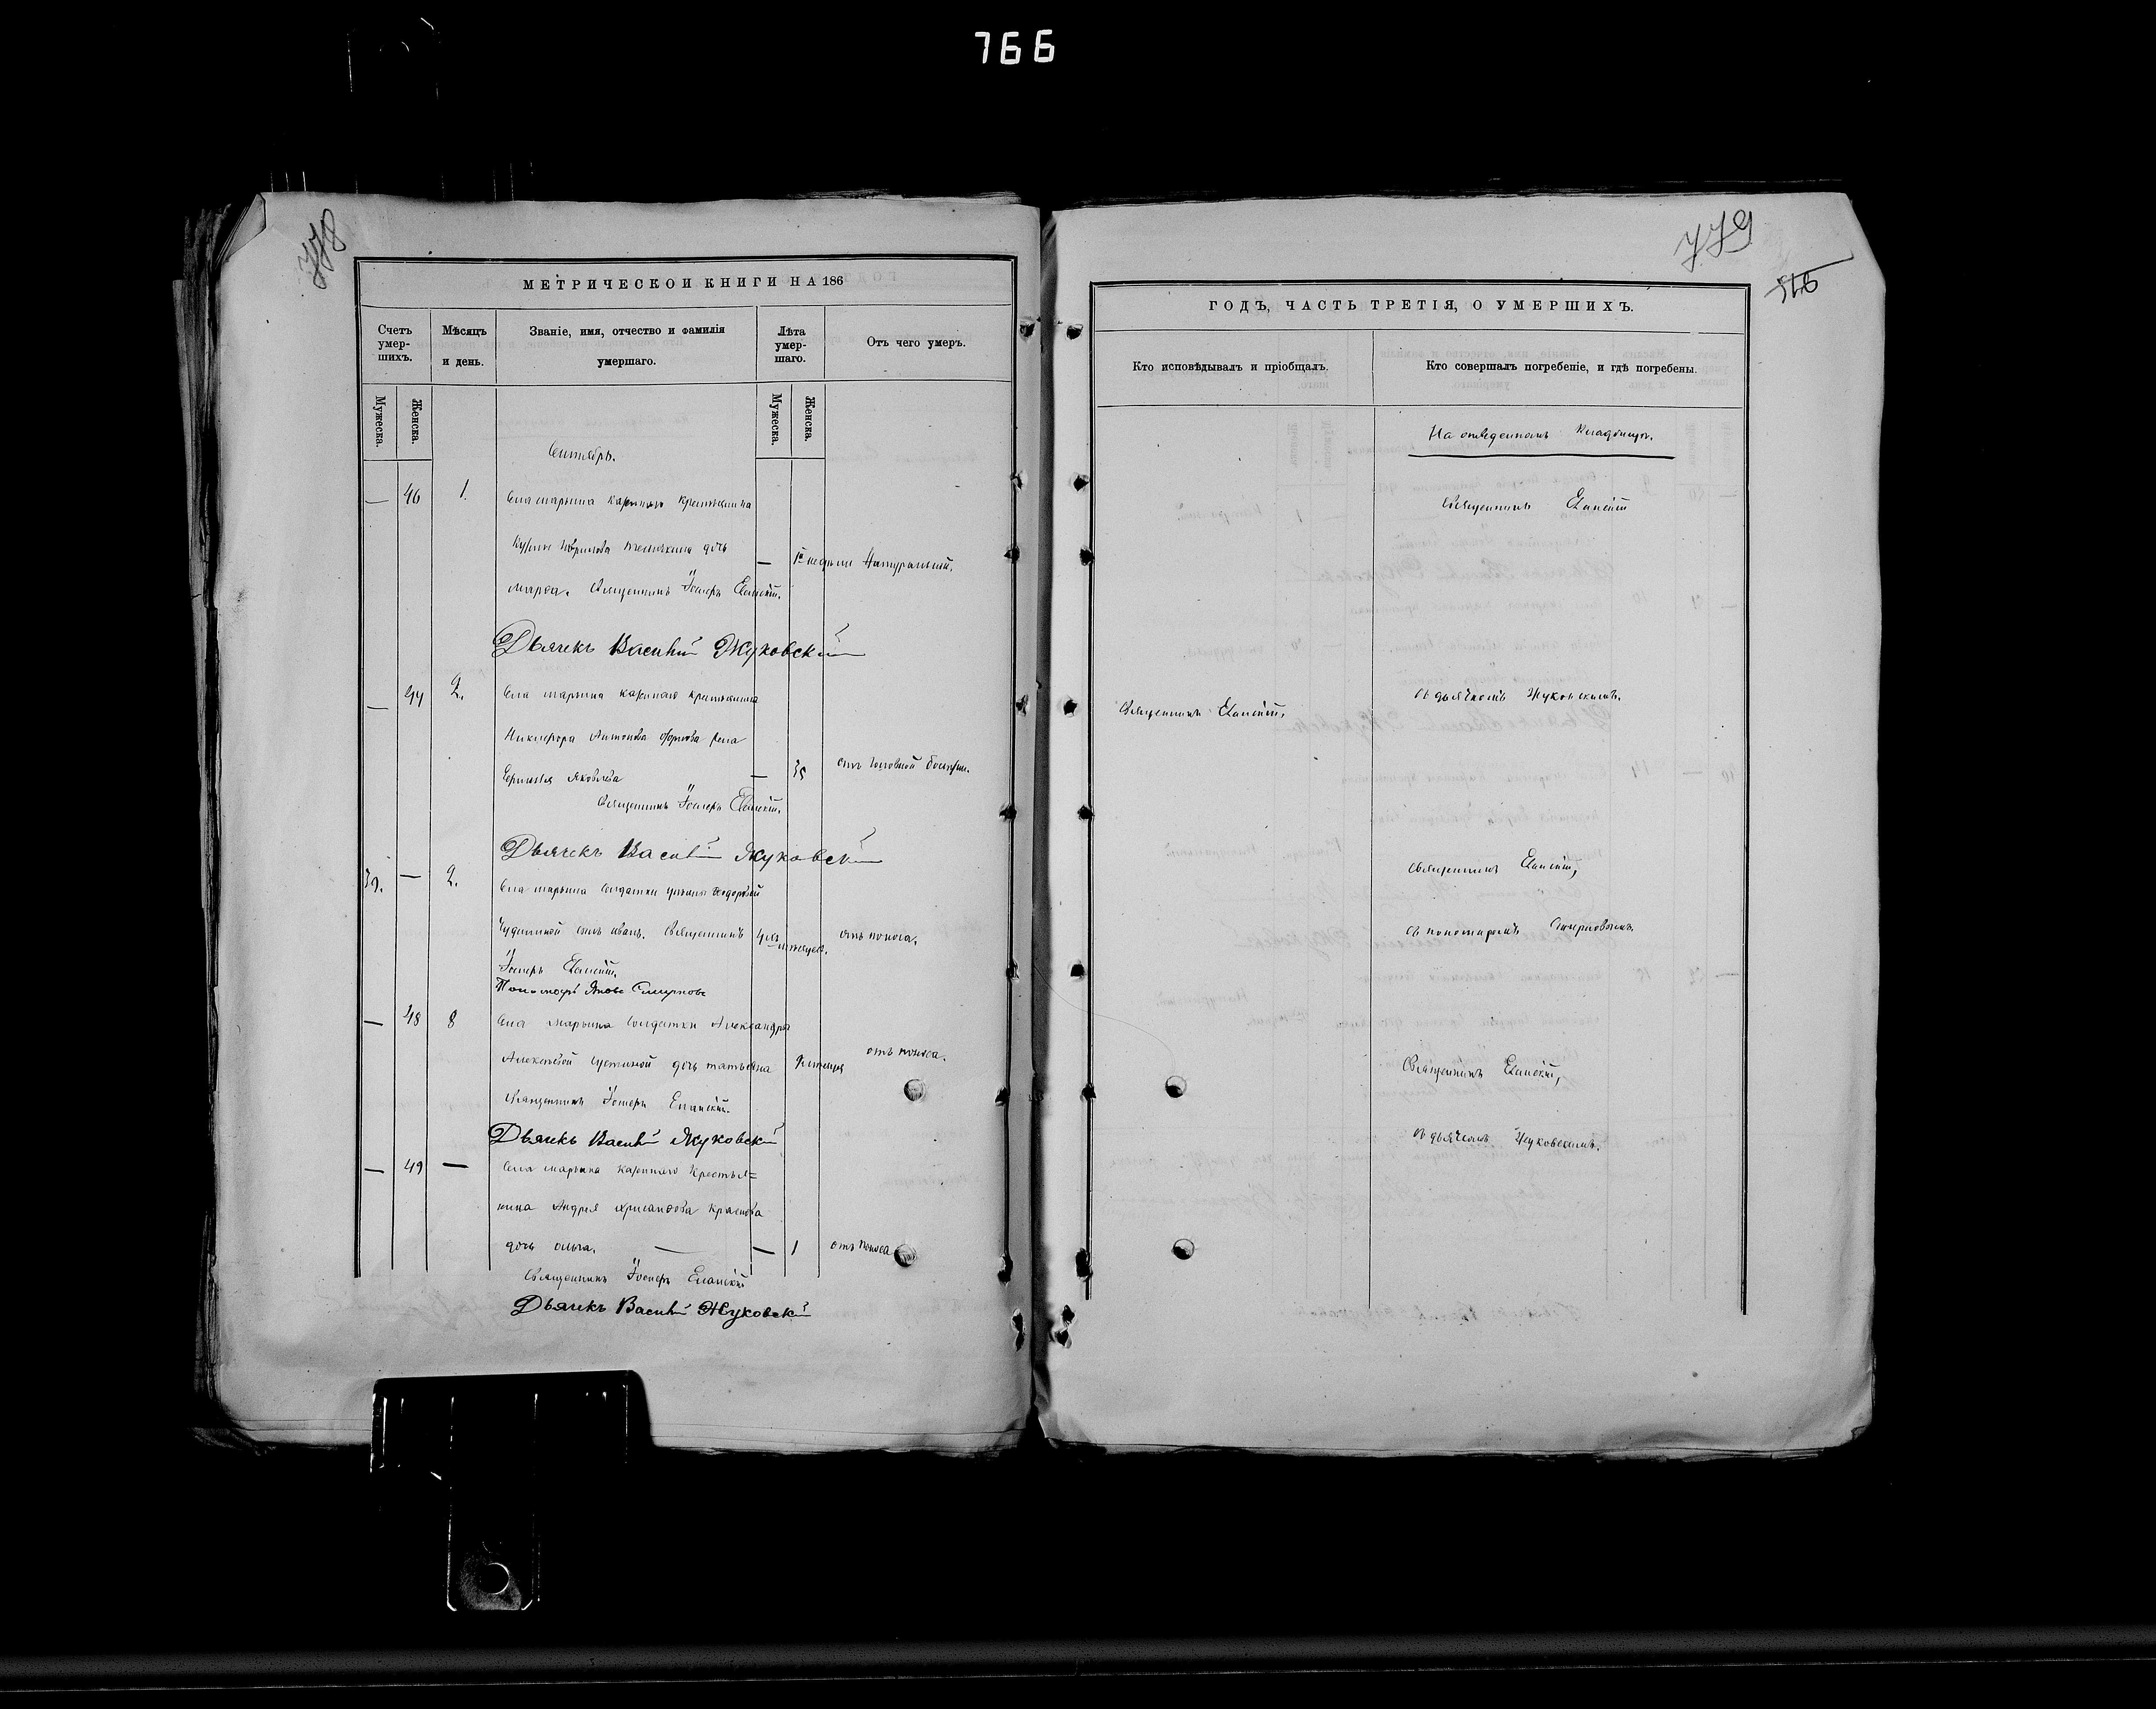 766
778
МЕТРИЧЕСКОЙ КНИГИ НА 186
Счетъ умер-шихъ.
Мѣсяцъ и день.
Званіе, имя, отчество и фамилія умершаго.
Лѣта умер-шаго.
Отъ чего умеръ.
Мужеска.
Женска.
Мужеска.
Женска.
Сентябрь.
— 46 1. Села марьина крестьянина
дочь
— недѣли Натуральной.
марѳа. Священникъ Іосифъ Еланскій.
Дьячекъ Василій Жуковскій
— 47 2. Села марьина крестьянина
Никифора Антонова жена
Яковлева — 35 отъ головной болѣзни.
Священникъ Іосифъ Еланскій.
Дьячекъ Василій Жуковскій
39. — 2. Села марьина солдатки
сынъ иванъ. Священникъ отъ поноса.
Іосифъ Еланскій.
Пономарь Яковъ Смирновъ
— 48 8 Села Марьина Солдатки Александры
Алексѣевой дочь татьяна отъ поноса.
Священникъ Іосифъ Еланскій.
Дьячекъ Василій Жуковскій
— 49 — Села марьина казеннаго Крестья=
нина Андрея Краснова
дочь ольга. — — 1 отъ поноса
Священникъ Іосифъ Еланскій
Дьячекъ Василій Жуковскій
779
ГОДЪ, ЧАСТЬ ТРЕТІЯ, О УМЕРШИХЪ.
Кто исповѣдывалъ и пріобщалъ.
Кто совершалъ погребеніе, и гдѣ погребены.
На отведенномъ Кладбищѣ.
Священникъ Еланскій
съ дьячкомъ Жуковскимъ.
Священникъ Еланскій.
Священникъ Еланскій,
съ пономаремъ Смирновымъ.
Священникъ Еланскій,
съ дьячкомъ Жуковскимъ.